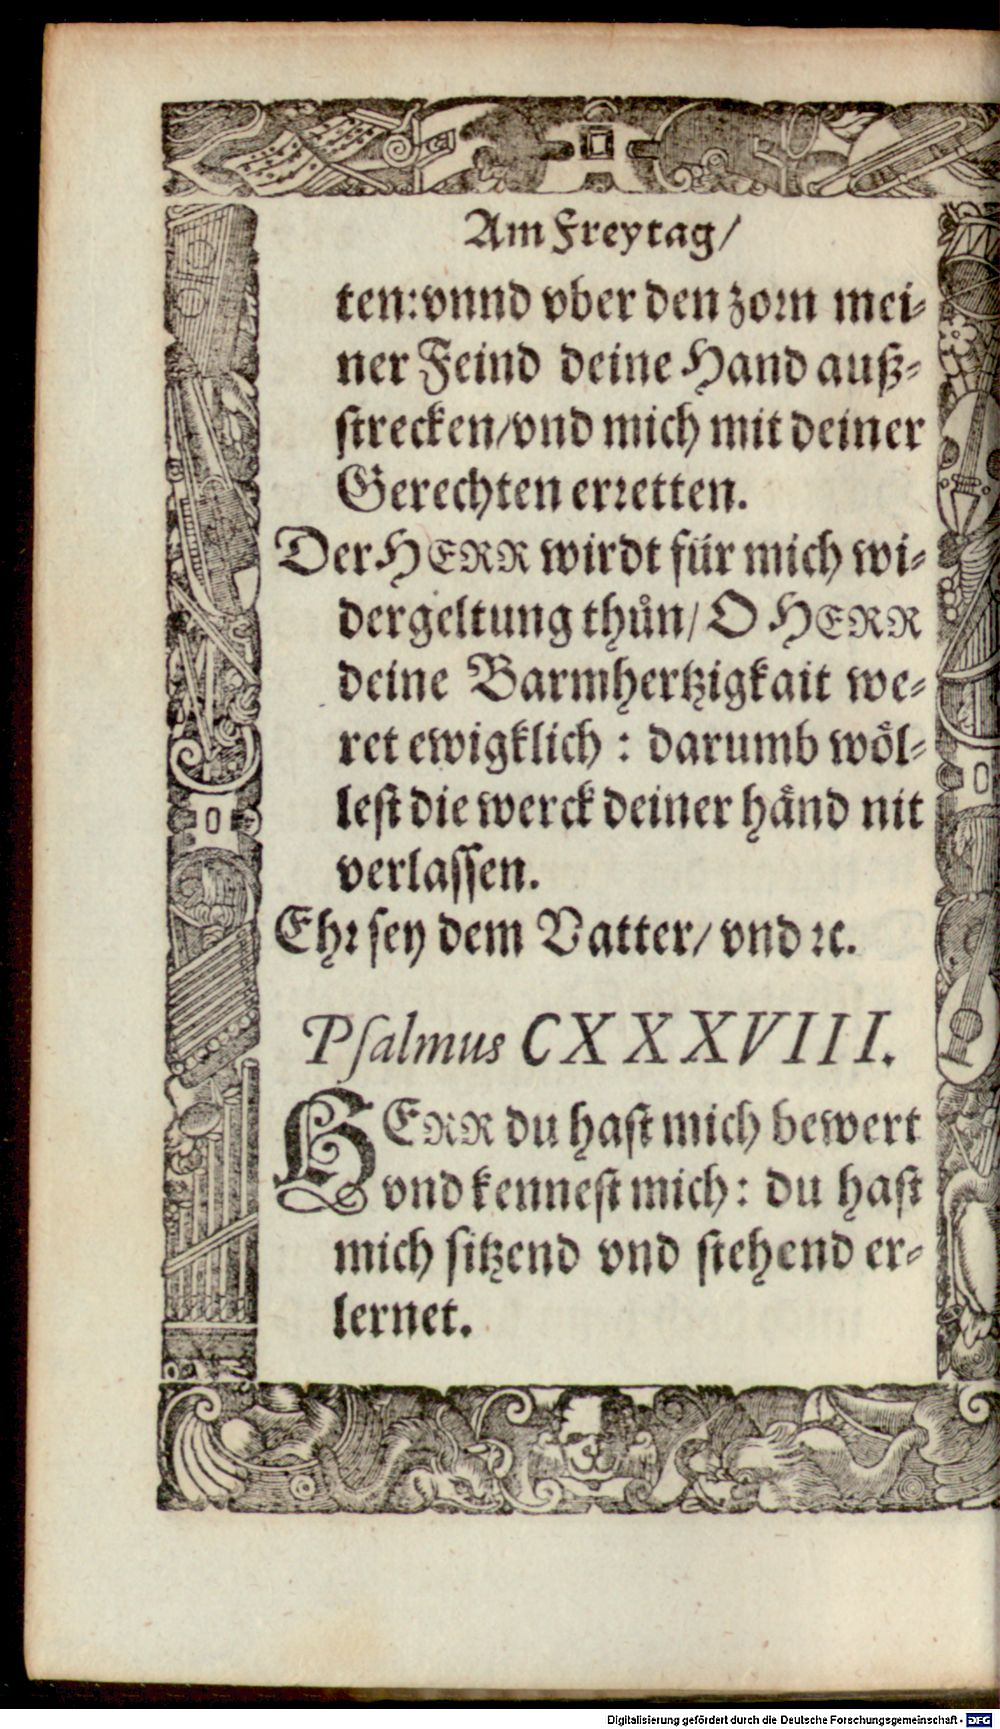 Am Freytag/
ten: vnnd vber den zorn mei-
ner Feind deine Hand auß-
strecken/vnd mich mit deiner
Gerechten erretten.
Der HERR wirdt für mich wi-
dergeltung thůn/ O HERR
deine Barmhertzigkait we-
ret ewigklich : darumb wöl-
lest die werck deiner händ nit
verlassen.
Ehr sey dem Vatter/ vnd ꝛc.
Psalmus CXXXVIII.
HERR du hast mich bewert
vnd kennest mich: du hast
mich sitzend vnd stehend er-
lernet.
Digitalisierung gefördert durch die Deutsche Forschungsgemeinschaft - DFG